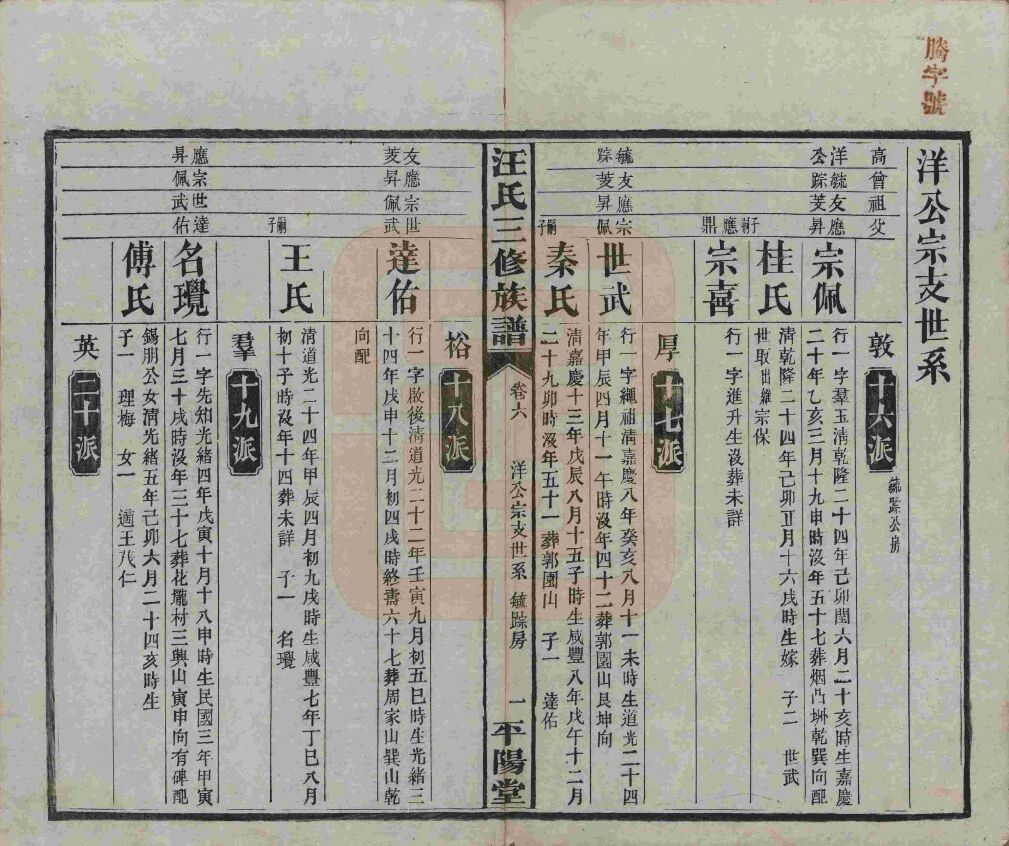 騰字號
洋公宗支世系
高曾祖父
洋公 毓踪 友菱 應昇
敦 十六派 毓踪公房
宗佩
行一字羣玉淸乾隆二十四年己卯閏六月二十亥時生嘉慶
二十年乙亥三月十九申時沒年五十七葬烟凸垪乾巽向配
桂氏
淸乾隆二十四年己卯正月十六戌時生嫁 子二 世武
世取出繼宗保
應鼎
宗喜
行一字進升生沒葬未詳
厚 十七派
毓踪 友菱 應昇 宗佩
世武
行一字繩祖淸嘉慶八年癸亥八月十一未時生道光二十四
年甲辰四月十一午時沒年四十二葬郭園山艮坤向
嗣子
秦氏
淸嘉慶十三年戊辰八月十五子時生咸豐八年戊午十二月
二十九卯時沒年五十一葬郭園山 子一 達佑
汪氏三修族譜 卷六 洋公宗支世系 毓踪房 一 平陽堂
裕 十八派
友菱 應昇 宗佩 世武
達佑
行一字啟後淸道光二十二年壬寅九月初五巳時生光緒三
十四年戊申十二月初四戌時終壽六十七葬周家山巽山乾
向配
嗣子
王氏
淸道光二十四年甲辰四月初九戌時生咸豐七年丁巳八月
初十子時沒年十四葬未詳 子一 名瓊
羣 十九派
應昇 宗佩 世武 達佑
名瓊
行一字先知光緒四年戊寅十月十八申時生民國三年甲寅
七月三十戌時沒年三十七葬花壠村三興山寅申向有碑配
傅氏
錫朋公女淸光緒五年己卯六月二十四亥時生
子一 理梅 女一 適王茂仁
英 二十派